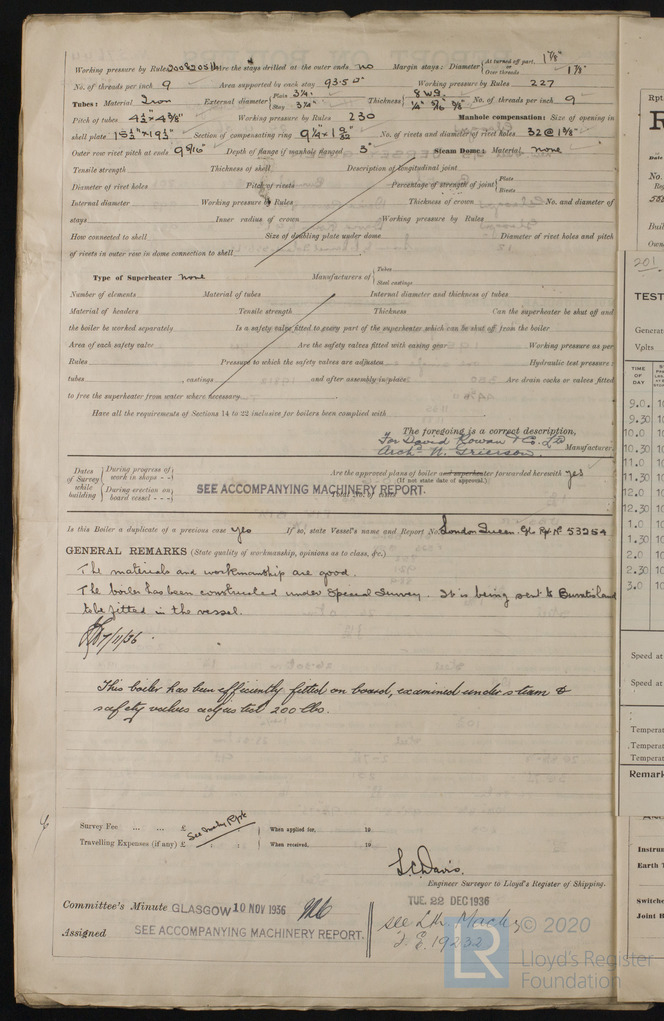 Working pressure by Rules 200 & 205 lb Are the stays drilled at the outer ends No Margin stays: Diameter { At turned off part, 1 7/8" Over threads 1 7/8"
No. of threads per inch 9 Area supported by each stay 93.5 □" Working pressure by Rules 227
Tubes: Material Iron External diameter { Plain 3 1/4" Stay 3 1/4" Thickness { 8 W.G. 1/4" 5/16" 3/8" No. of threads per inch 9
Pitch of tubes 4 1/2" × 4 3/8" Working pressure by Rules 230 Manhole compensation: Size of opening in
shell plate 15 1/2" × 19 1/2" Section of compensating ring No. of rivets and diameter of rivet holes 32 @ 1 3/8"
Outer row rivet pitch at ends 9 9/16" Depth of flange if manhole flanged 3" Steam Dome: Material None
Tensile strength Thickness of shell Description of longitudinal joint
Diameter of rivet holes Pitch of rivets Percentage of strength of joint { Plate Rivets
Internal diameter Working pressure by Rules Thickness of crown No. and diameter of
stays Inner radius of crown Working pressure by Rules
How connected to shell Size of doubling plate under dome Diameter of rivet holes and pitch
of rivets in outer row in dome connection to shell
Type of Superheater None Manufacturers of { Tubes Steel castings
Number of elements Material of tubes Internal diameter and thickness of tubes
Material of headers Tensile strength Thickness Can the superheater be shut off and
the boiler be worked separately Is a safety valve fitted to every part of the superheater which can be shut off from the boiler
Area of each safety valve Are the safety valves fitted with easing gear Working pressure as per
Rules Pressure to which the safety valves are adjusted Hydraulic test pressure:
tubes , castings and after assembly in place Are drain cocks or valves fitted
to free the superheater from water where necessary
Have all the requirements of Sections 14 to 22 inclusive for boilers been complied with
The foregoing is a correct description,
For David Rowan & Co. Ld
Archd. W. Grierson. Manufacturer.
Dates of Survey while building { During progress of work in shops - - } { During erection on board vessel - - - }
Are the approved plans of boiler and superheater forwarded herewith Yes
(If not state date of approval.)
SEE ACCOMPANYING MACHINERY REPORT.
Total No. of visits
Is this Boiler a duplicate of a previous case Yes If so, state Vessel's name and Report No. London Queen. Gls Rpt No 53254
GENERAL REMARKS (State quality of workmanship, opinions as to class, &c.)
The materials and workmanship are good.
The boiler has been constructed under Special Survey. It is being sent to Burntisland
to be fitted in the vessel.
7/11/36.
This boiler has been efficiently fitted on board, examined under steam &
safety valves adjusted 200 lbs.
Survey Fee ... ... £ See Mchy Rpt When applied for, 19
Travelling Expenses (if any) £ : : When received, 19
L.C. Davis.
Engineer Surveyor to Lloyd's Register of Shipping.
Committee's Minute GLASGOW 10 NOV 1936
TUE 22 DEC 1936
Assigned SEE ACCOMPANYING MACHINERY REPORT.
See Lth. Machy
F.E. 19232
© 2020
LR
Lloyd's Register
Foundation
Rpt.
R
No.
201
TEST
Generat
Volts
TIME
OF
DAY
9.0
9.30
10.0
10.30
11.0
11.30
12.0
12.30
1.0
1.30
2.0
2.30
3.0
Speed at
Speed at
Temperat
Temperat
Temperat
Remark
Instrum
Earth T
Switche
Joint H